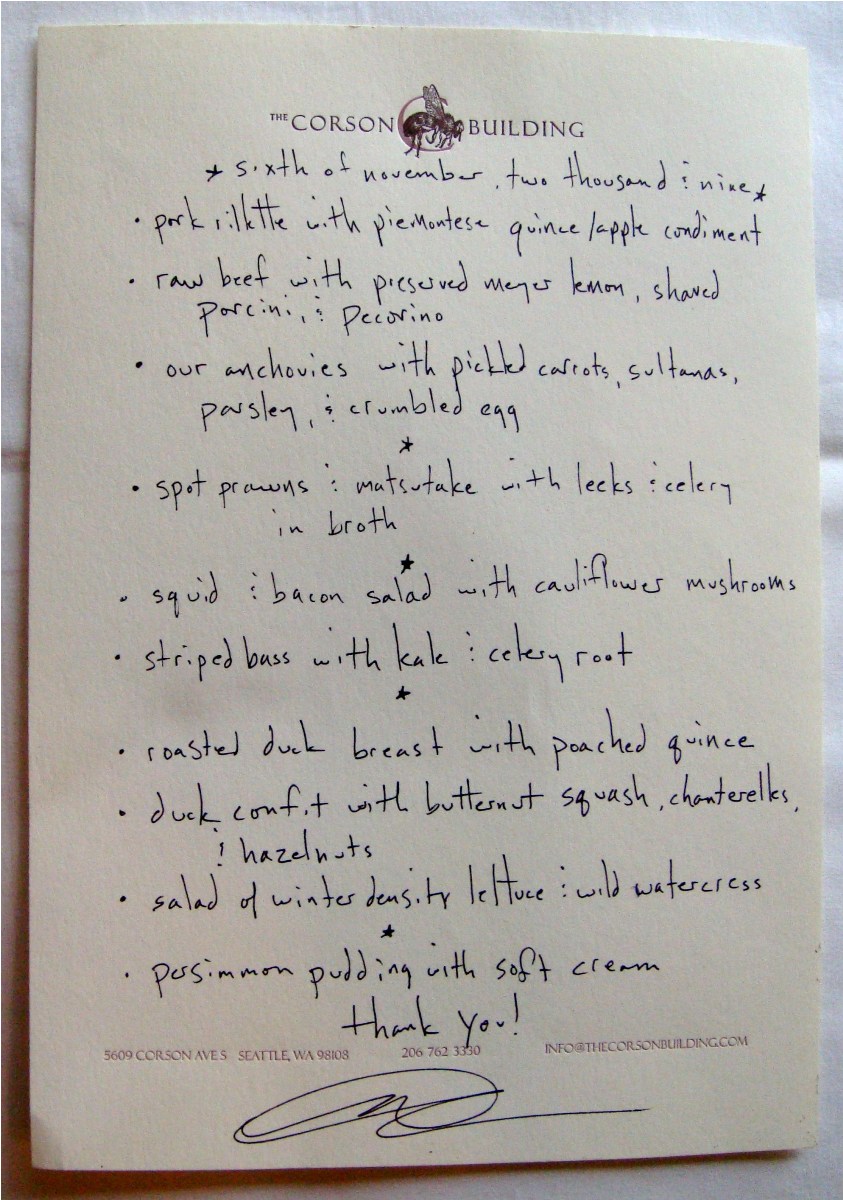 THE CORSON BUILDING
* sixth of november, two thousand & nine *
• pork rillette with piemontese quince/apple condiment
• raw beef with preserved meyer lemon, shaved
porcini, & pecorino
• our anchovies with pickled carrots, sultanas,
parsley, & crumbled egg
*
• spot prawns & matsutake with leeks & celery
in broth
*
• squid & bacon salad with cauliflower mushrooms
• striped bass with kale & celery root
*
• roasted duck breast with poached quince
• duck confit with butternut squash, chanterelles,
& hazelnuts
• salad of winter density lettuce & wild watercress
*
• persimmon pudding with soft cream
thank you!
5609 CORSON AVE S SEATTLE, WA 98108 206 762 3330 INFO@THECORSONBUILDING.COM